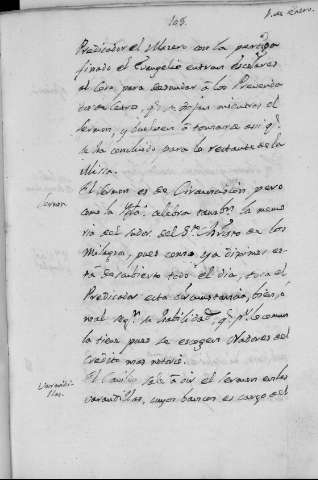 1. de Enero.
103.
Predicador el Misero con la
finado el Evangelio entran Escolares
al Coro para desnudar à los Prevenda
dos de Cetro, q.e dejan mientras el
sermon, y buelven à tomarse asi q.e
se ha concluido para lo restante de la
Missa.
Sermon
El sermon es de Circuncision, pero
como la Ygta. celebra tambn. la memo
ria del Sudor del S.mo Christo de los
Milagros, pues como ya digimos es
ta descubierto todo el dia, toca el
Predicador esta circunstancia, bien, ò
mal segn. su habilidad, q.e pr. lo comun
la tiene pues se escogen Oradores del
credito mas notorio.
Varandi-
llas.
El Cavildo sale à oir el sermon en las
varandillas, cuyos bancos es cargo del